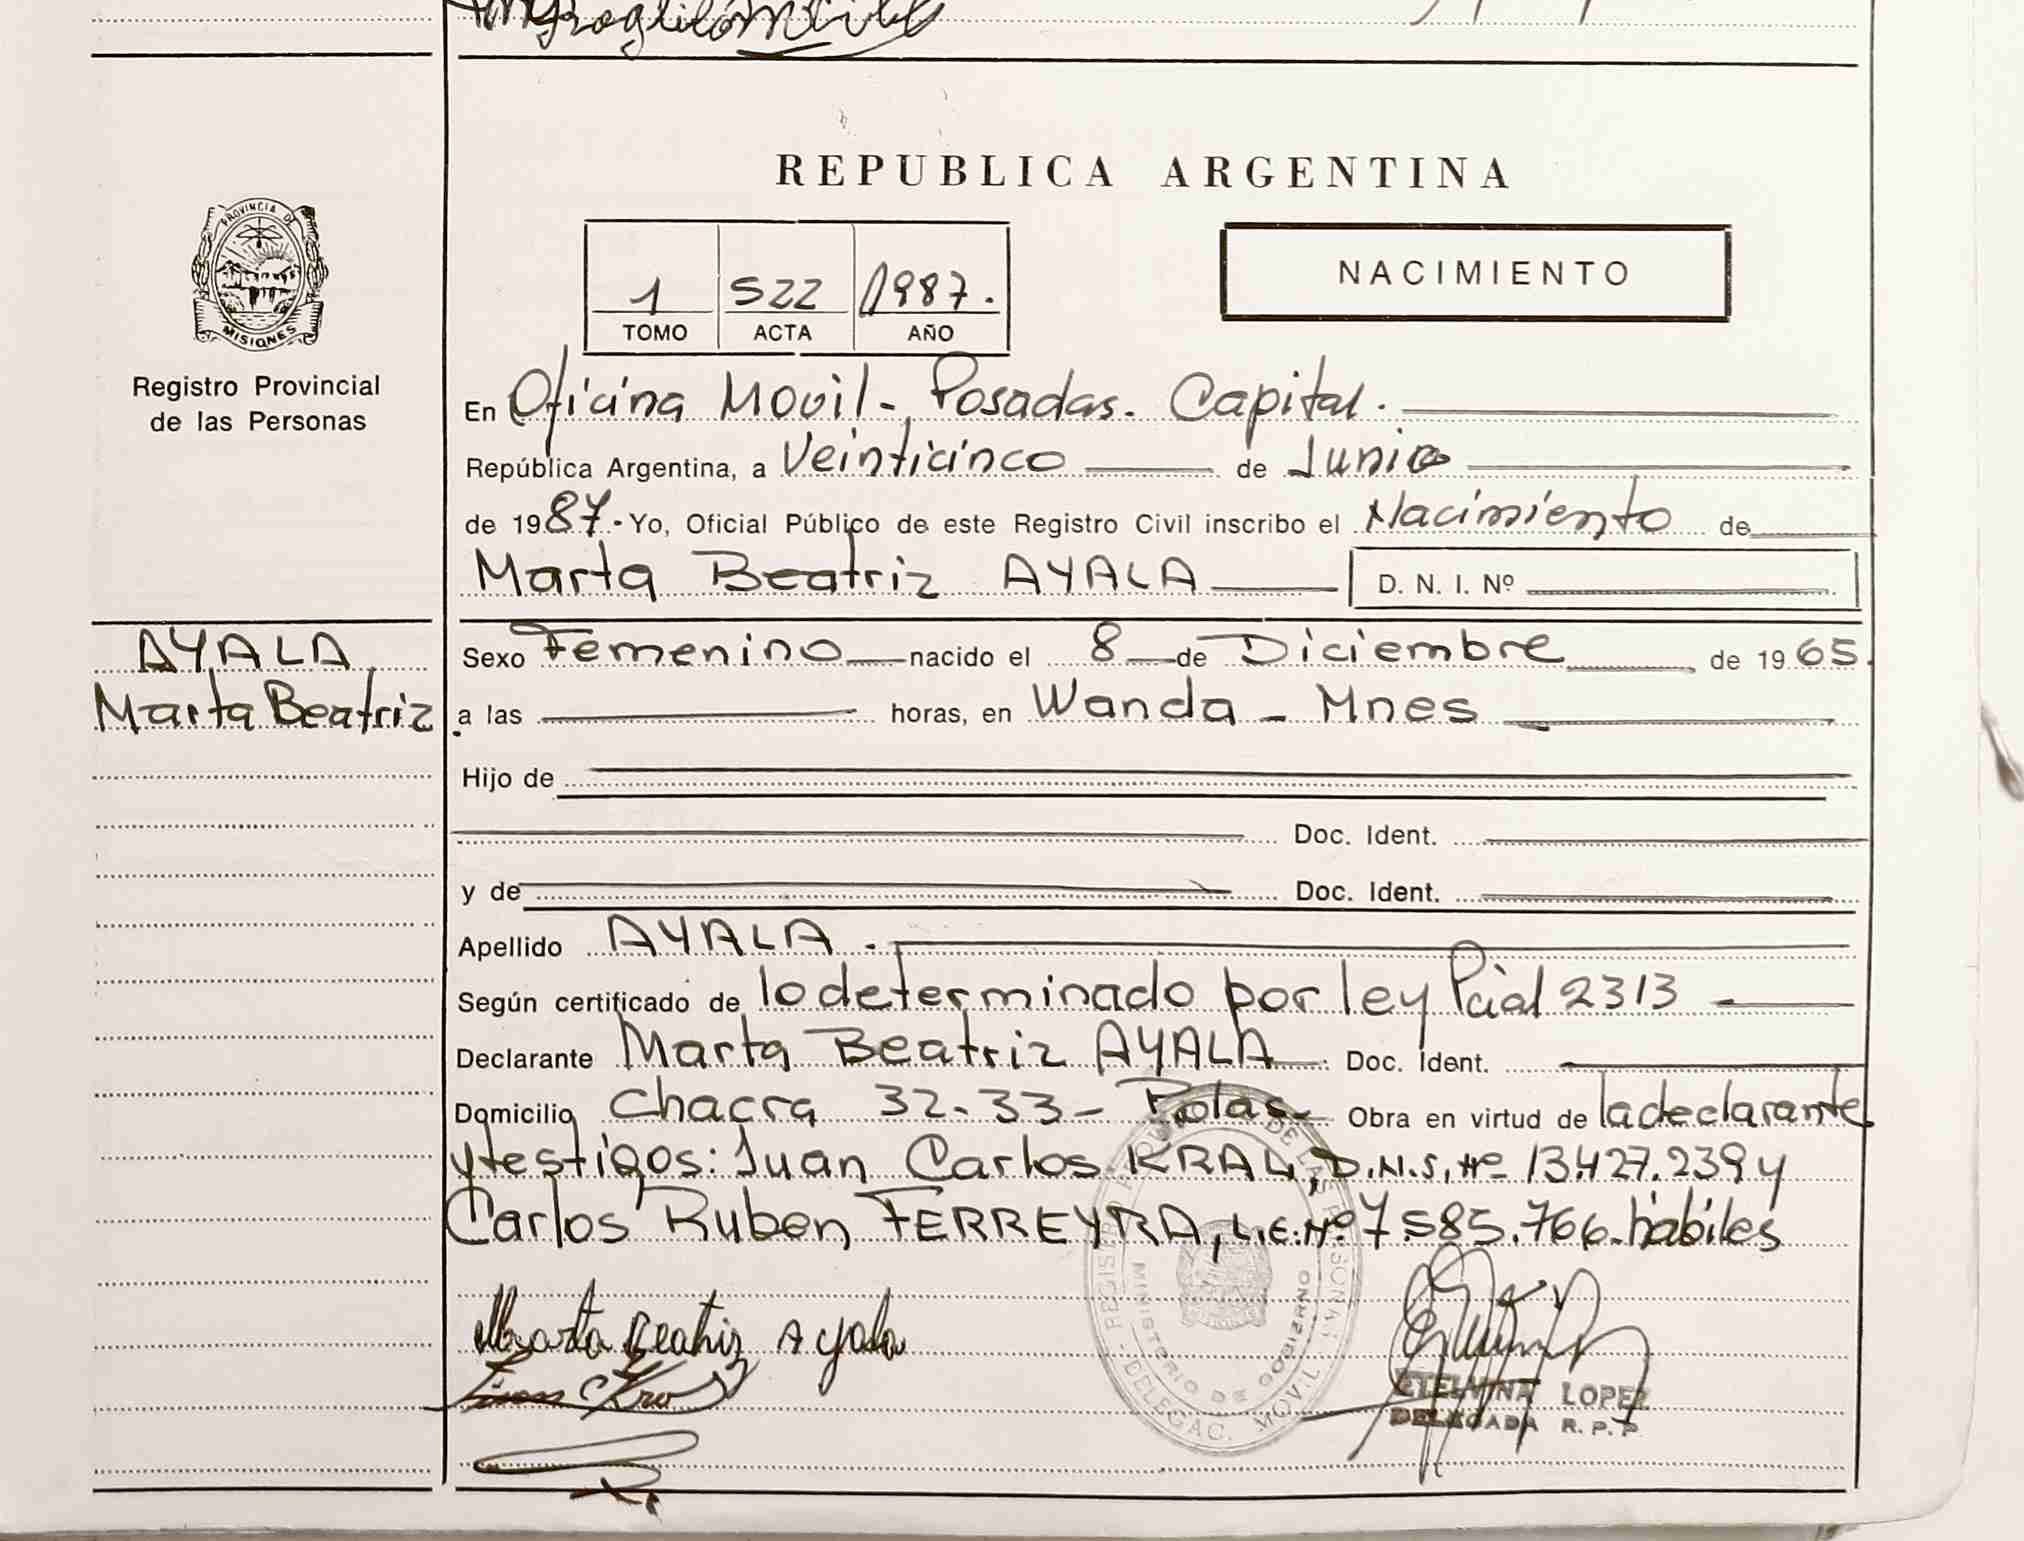 REPUBLICA ARGENTINA
PROVINCIA DE
MISIONES
Registro Provincial
de las Personas
1 522 1987.
TOMO ACTA AÑO
NACIMIENTO
En Oficina Movil - Posadas. Capital.
República Argentina, a Veinticinco de Junio
de 1987.- Yo, Oficial Público de este Registro Civil inscribo el Nacimiento de
Marta Beatriz AYALA D. N. I. Nº
AYALA
Marta Beatriz.
Sexo Femenino nacido el 8 de Diciembre de 1965.
a las horas, en Wanda - Mnes
Hijo de
Doc. Ident.
y de Doc. Ident.
Apellido AYALA.
Según certificado de lo determinado por ley Pcial 2313
Declarante Marta Beatriz AYALA Doc. Ident.
Domicilio Chacra 32-33- Obra en virtud de la declarante
y testigos: Juan Carlos KRAL, D.N.I. Nº 13.427.239 y
Carlos Ruben FERREYRA, L.E. Nº 7.585.766. hábiles
Marta Beatriz Ayala
REGISTRO PROVINCIAL DE LAS PERSONAS
MINISTERIO DE GOBIERNO
-DELEGAC. MOVIL-
ETELVINA LOPEZ
DELEGADA R. P. P.